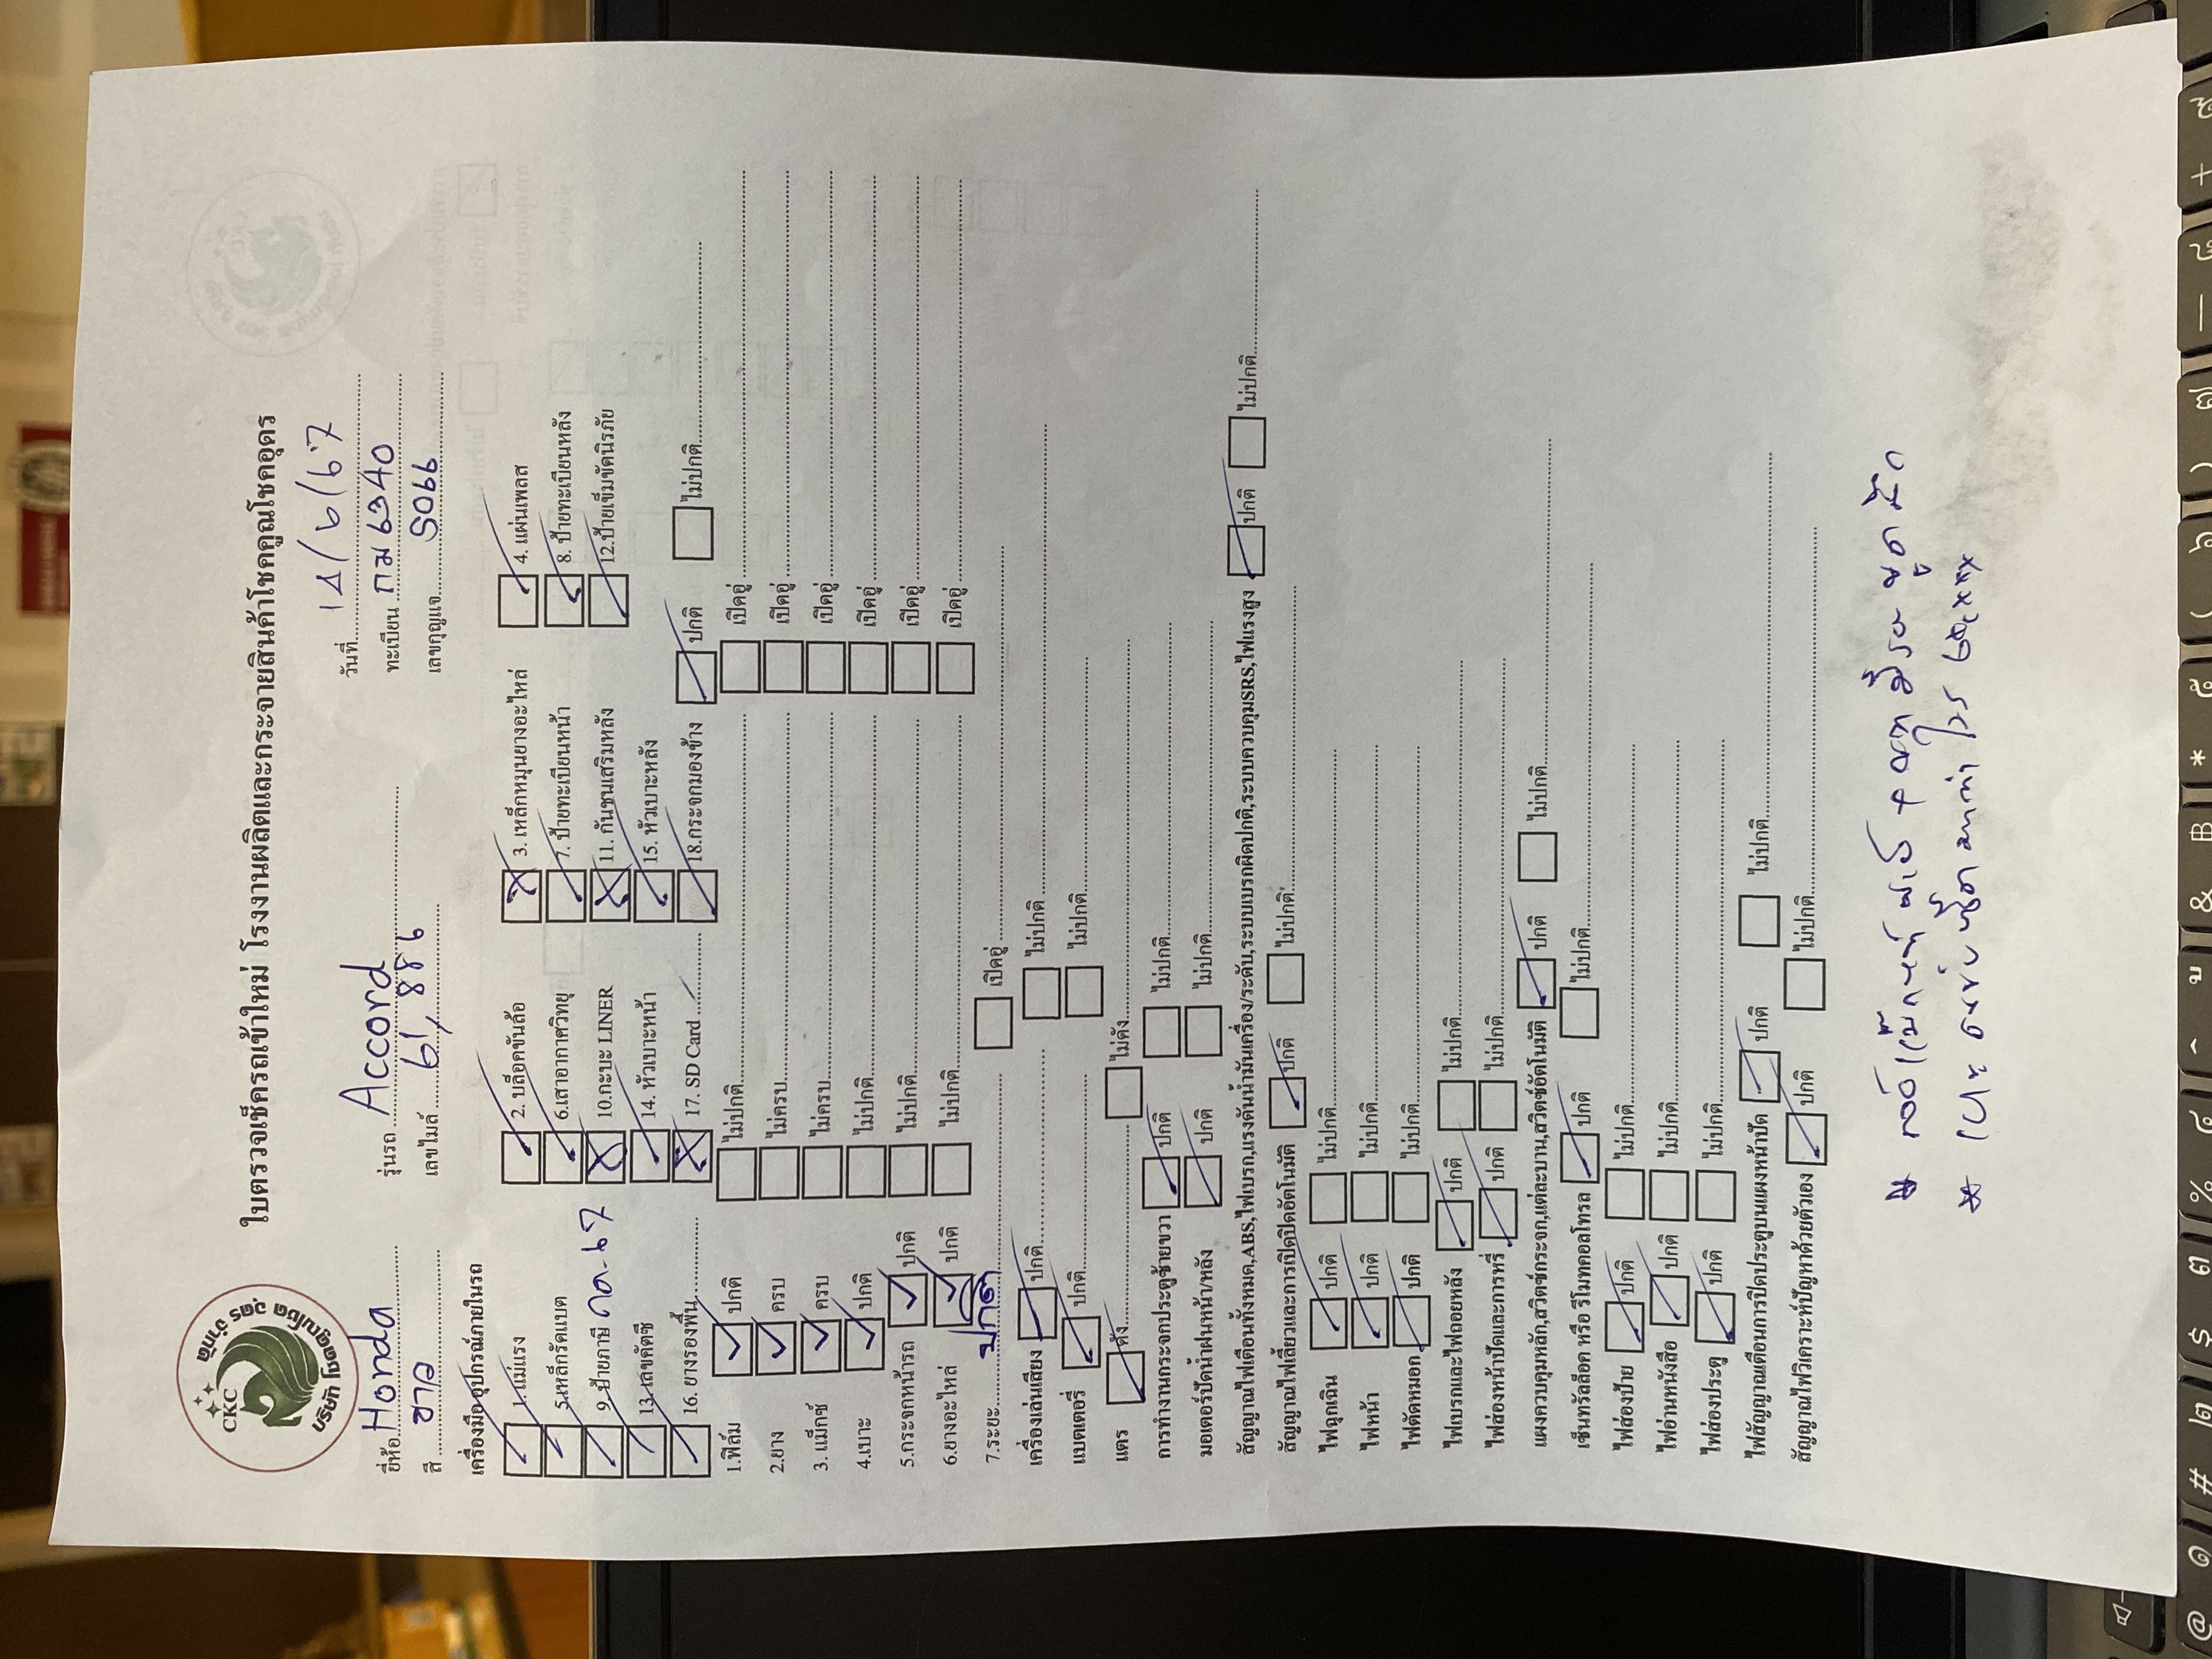 CKC
บริษัท โชคคูณโชค อุดร จำกัด
ใบตรวจเช็ครถเข้าใหม่ โรงงานผลิตและกระจายสินค้าโชคคูณโชคอุดร
วันที่ 14/6/67
ยี่ห้อ Honda รุ่นรถ Accord ทะเบียน กม 6340
สี ขาว เลขไมล์ 61,886 เลขกุญแจ S066
เครื่องมืออุปกรณ์ภายในรถ
1. แม่แรง 2. บล็อคขันล้อ 3. เหล็กหมุนยางอะไหล่ 4. แผ่นเพลส
5.เหล็กรัดแบต 6.เสาอากาศวิทยุ 7.ป้ายทะเบียนหน้า 8. ป้ายทะเบียนหลัง
9.ป้ายภาษี กค-67 10.กะบะ LINER 11. กันชนเสริมหลัง 12.ป้ายเข็มขัดนิรภัย
13.เลขคัตซี 14. หัวเบาะหน้า 15. หัวเบาะหลัง
16. ยางรองพื้น 17. SD Card 18.กระจกมองข้าง ปกติ ไม่ปกติ
1.ฟิล์ม ปกติ ไม่ปกติ เปิดอู่
2.ยาง ครบ ไม่ครบ เปิดอู่
3. แม็กซ์ ครบ ไม่ครบ เปิดอู่
4.เบาะ ปกติ ไม่ปกติ เปิดอู่
5.กระจกหน้ารถ ปกติ ไม่ปกติ เปิดอู่
6.ยางอะไหล่ ปกติ ไม่ปกติ เปิดอู่
7.ระยะ ปกติ เปิดอู่
เครื่องเล่นเสียง ปกติ ไม่ปกติ
แบตเตอรี่ ปกติ ไม่ปกติ
แตร ดัง ไม่ดัง
การทำงานกระจกประตูซ้ายขวา ปกติ ไม่ปกติ
มอเตอร์ปัดน้ำฝนหน้า/หลัง ปกติ ไม่ปกติ
สัญญาณไฟเตือนทั้งหมด,ABS,ไฟเบรก,แรงดันน้ำมันเครื่อง/ระดับ,ระบบเบรกผิดปกติ,ระบบควบคุมSRS,ไฟแรงสูง ปกติ ไม่ปกติ
สัญญาณไฟเลี้ยวและการเปิดปิดอัตโนมัติ ปกติ ไม่ปกติ
ไฟฉุกเฉิน ปกติ ไม่ปกติ
ไฟหน้า ปกติ ไม่ปกติ
ไฟตัดหมอก ปกติ ไม่ปกติ
ไฟเบรกและไฟถอยหลัง ปกติ ไม่ปกติ
ไฟส่องหน้าปัดและการหรี่ ปกติ ไม่ปกติ
แผงควบคุมหลัก,สวิตซ์กระจก,แต่ละบาน,สวิตซ์อัตโนมัติ ปกติ ไม่ปกติ
เซ็นทรัลล็อค หรือ รีโมทคอลโทรล ปกติ ไม่ปกติ
ไฟส่องป้าย ปกติ ไม่ปกติ
ไฟอ่านหนังสือ ปกติ ไม่ปกติ
ไฟส่องประตู ปกติ ไม่ปกติ
ไฟสัญญาณเตือนการปิดประตูบนแผงหน้าปัด ปกติ ไม่ปกติ
สัญญาณไฟวิเคราะห์ปัญหาด้วยตัวเอง ปกติ ไม่ปกติ